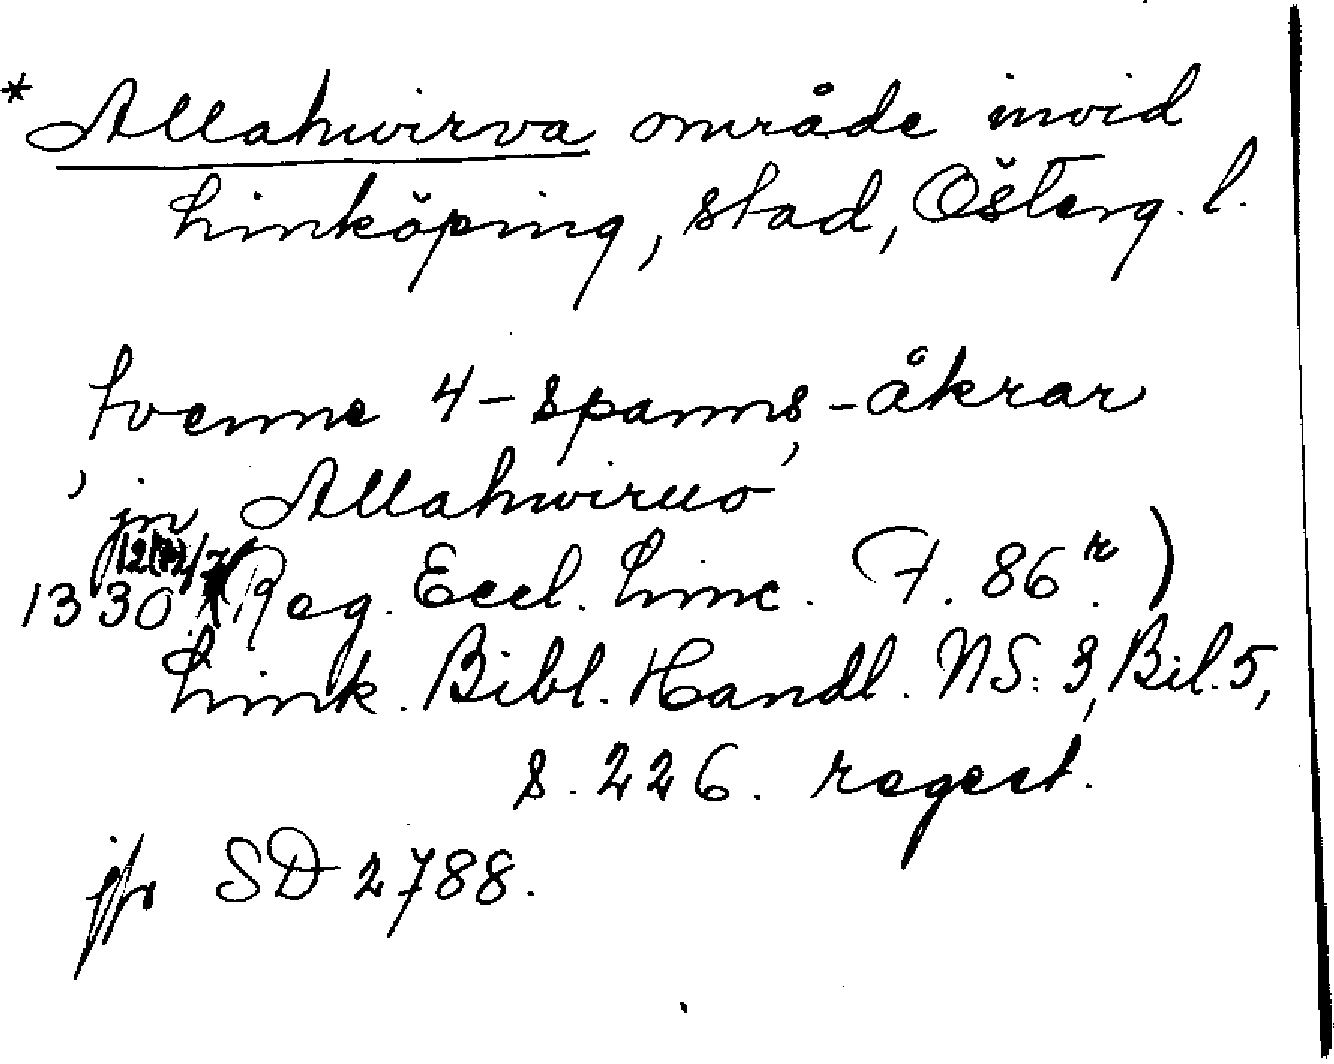 * Allahwirva område invid
Linköping, stad, Österg. l.
tvenne 4-spanns-åkrar
, jn Allahwiruo ,
1330 (Reg. Eccl. Linc. F. 86 r.)
Link. Bibl. Handl. NS. 3, Bil. 5,
s. 226. regest.
jfr SD 2788.